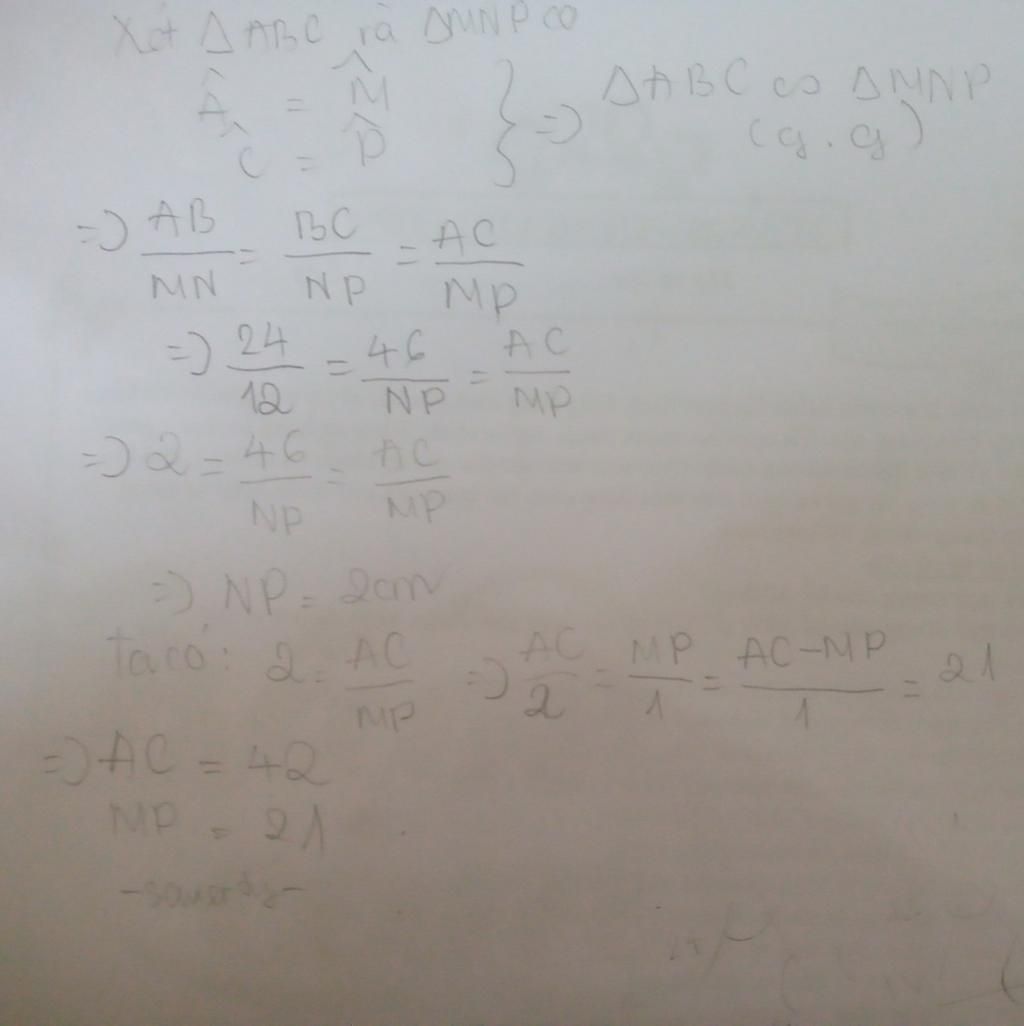 Xét Δ ABC và ΔMNP có
Â = M̂
Ĉ = P̂
} => ΔABC ∽ ΔMNP
(g.g)
=> AB/MN = BC/NP = AC/MP
=> 24/12 = 46/NP = AC/MP
=> 2 = 46/NP = AC/MP
=> NP = 2cm
Ta có: 2 = AC/MP => AC/2 = MP/1 = AC-MP/1 = 21
=> AC = 42
MP = 21